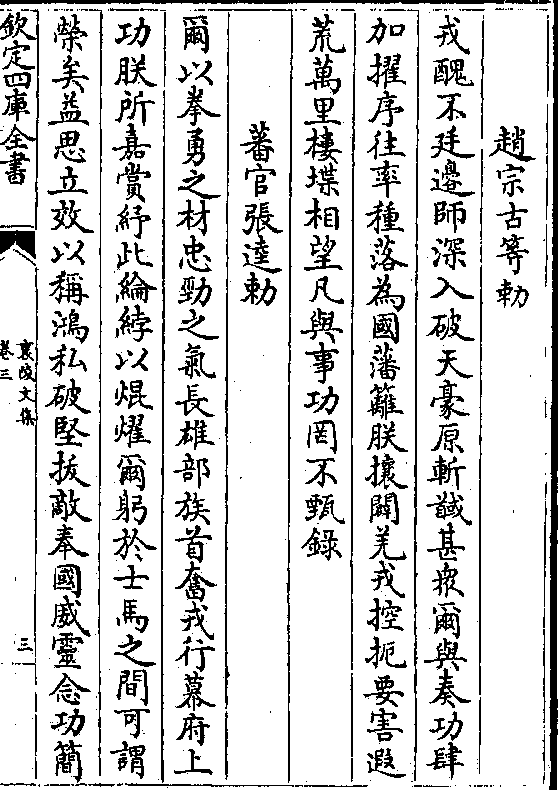 趙宗古等勅
戎醜不廷邊師深入破天豪原斬馘甚衆爾與奏功肆
加擢序往率種落為國藩籬朕攘闢羌戎控扼要害遐
荒萬里棲堞相望凡與事功罔不甄錄
蕃官張達勅
爾以拳勇之材忠勁之氣長雄部族首奮戎行幕府上
功朕所嘉賞紓此綸綍以焜燿爾躬於士馬之間可謂
榮矣益思立效以稱鴻私破堅拔敵奉國威靈念功簡
欽定四庫全書
襄陵文集
卷三
三